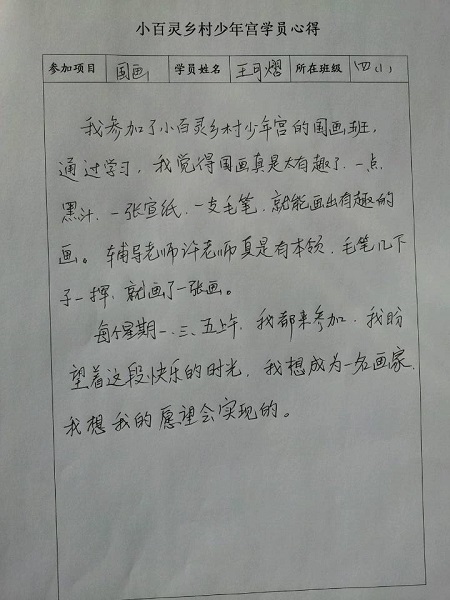 小百灵乡村少年宫学员心得
参加项目 国画 学员姓名 王可熠 所在班级 四(1)
我参加了小百灵乡村少年宫的国画班,
通过学习,我觉得国画真是太有趣了.一点
黑汁.一张宣纸.一支毛笔.就能画出有趣的
画。辅导老师许老师真是有本领,毛笔几下
子一挥,就画了一张画。
每个星期一.三.五上午,我都来参加.我盼
望着这段快乐的时光,我想成为一名画家.
我想我的愿望会实现的。